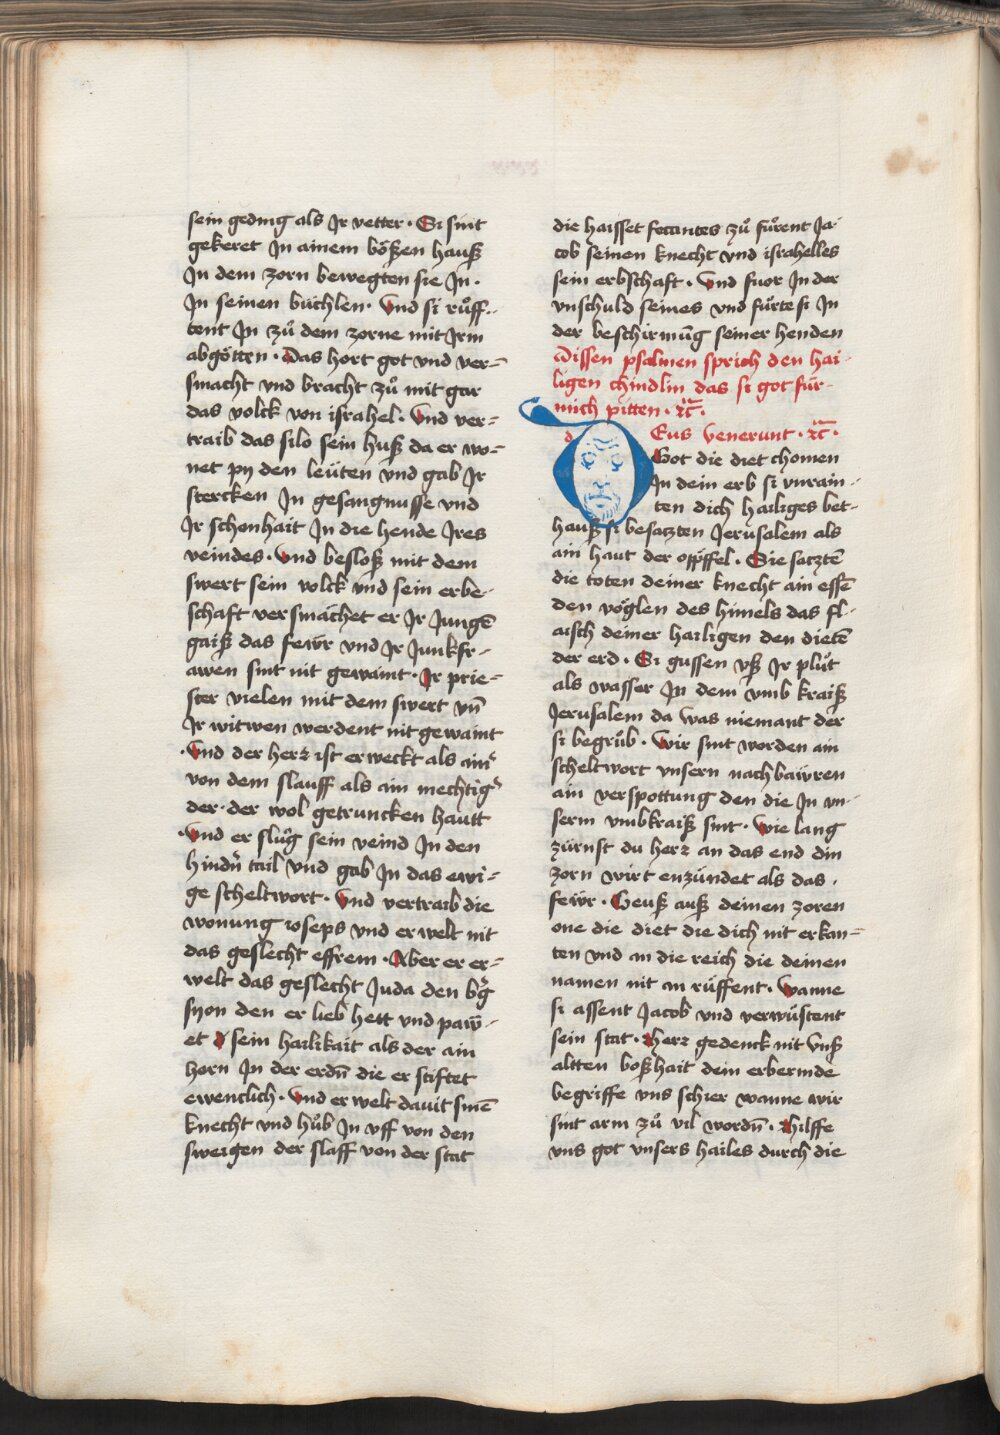 sein geding als Jr vetter · Si sint
gekeret Jn ainem bößen hauß
Jn dem zorn bewegten sie Jn ·
Jn seinen büchlen · Vnd si růff-
tent Jn zů dem zorne mit Jrm
abgötten · Das hort got vnd ver-
smacht vnd bracht zů mit gar
das volck von israhel · Vnd ver-
traib das silo sein huß da er wo-
net py den leüten vnd gab Jr
stercken Jn gefangnusse vnd
Jr schonhait Jn die hende Jres
veindes · Vnd besloß mit dem
swert sein volck vnd sein erbe-
schaft versmächet er Jr Jungē
gaiß das fewr vnd Jr Junkfr-
awen sint nit gewaint · Jr prie-
ster vielen mit dem swert vn̄
Jr witwen werdent nit gewaint
· Vnd der herr ist erweckt als ain
von dem slauff als ain mechtig
der · der wol getruncken hautt
· Vnd er slůg sein veind Jn den
hindn̄ tail vnd gab Jn das ewi-
ge scheltwort · Vnd vertraib die
wonung ioseps vnd erwelt nit
das geslecht effrem · Aber er er-
welt das geslecht Juda den b̄g
syon den er lieb hett vnd paw-
et sein hailikait als der ain
horn Jn der erdn̄ die er stiftet
ewenclich · Vnd erwelt dauit sinē
knecht vnd hůb Jn vff von den
sweigen der slaff von der stat
die haisset fetantes zů fůrent Ja-
cob seinen knecht vnd israhelles
sein erbschaft · Vnd fuor Jn der
vnschuld seines vnd fůrte si Jn
der beschirmūg seiner henden
Dissen psalmen sprich den hai-
ligen chindlin das si got für
mich pitten · ꝛc̄ ·
d Eus venerunt · ꝛc̄ ·
Got die diet chomen
Jn dein erb si vnrain-
ten dich hailiges bet-
hauß si besatzten Jerusalem als
ain haut der opffel · Sie satztē
die toten deiner knecht ain essē
den vöglen des himels das fl-
aisch deiner hailigen den dietē
der erd · Si gussen vß Jr plůt
als wasser Jn dem vmb kraiß
Jerusalem da was niemant der
si begrůb · Wir sint worden ain
scheltwort vnsern nachbawren
ain verspottung den die Jn vn-
serm vmbkraiß sint · Wie lang
zürnst du herr an das end din
zorn wirt enzündet als das
fewr · Geuß auß deinen zoren
one die diet die dich nit erkan-
ten vnd an die reich die deinen
namen nit an rüffent · Wanne
si assent Jacob vnd verwüstent
sein stat · Herr gedenck nit vnß
altten boßhait dein erbermde
begriffe vns schier wanne wir
sint arm zů vil wordn̄ · Hilffe
vns got vnsers hailes durch die